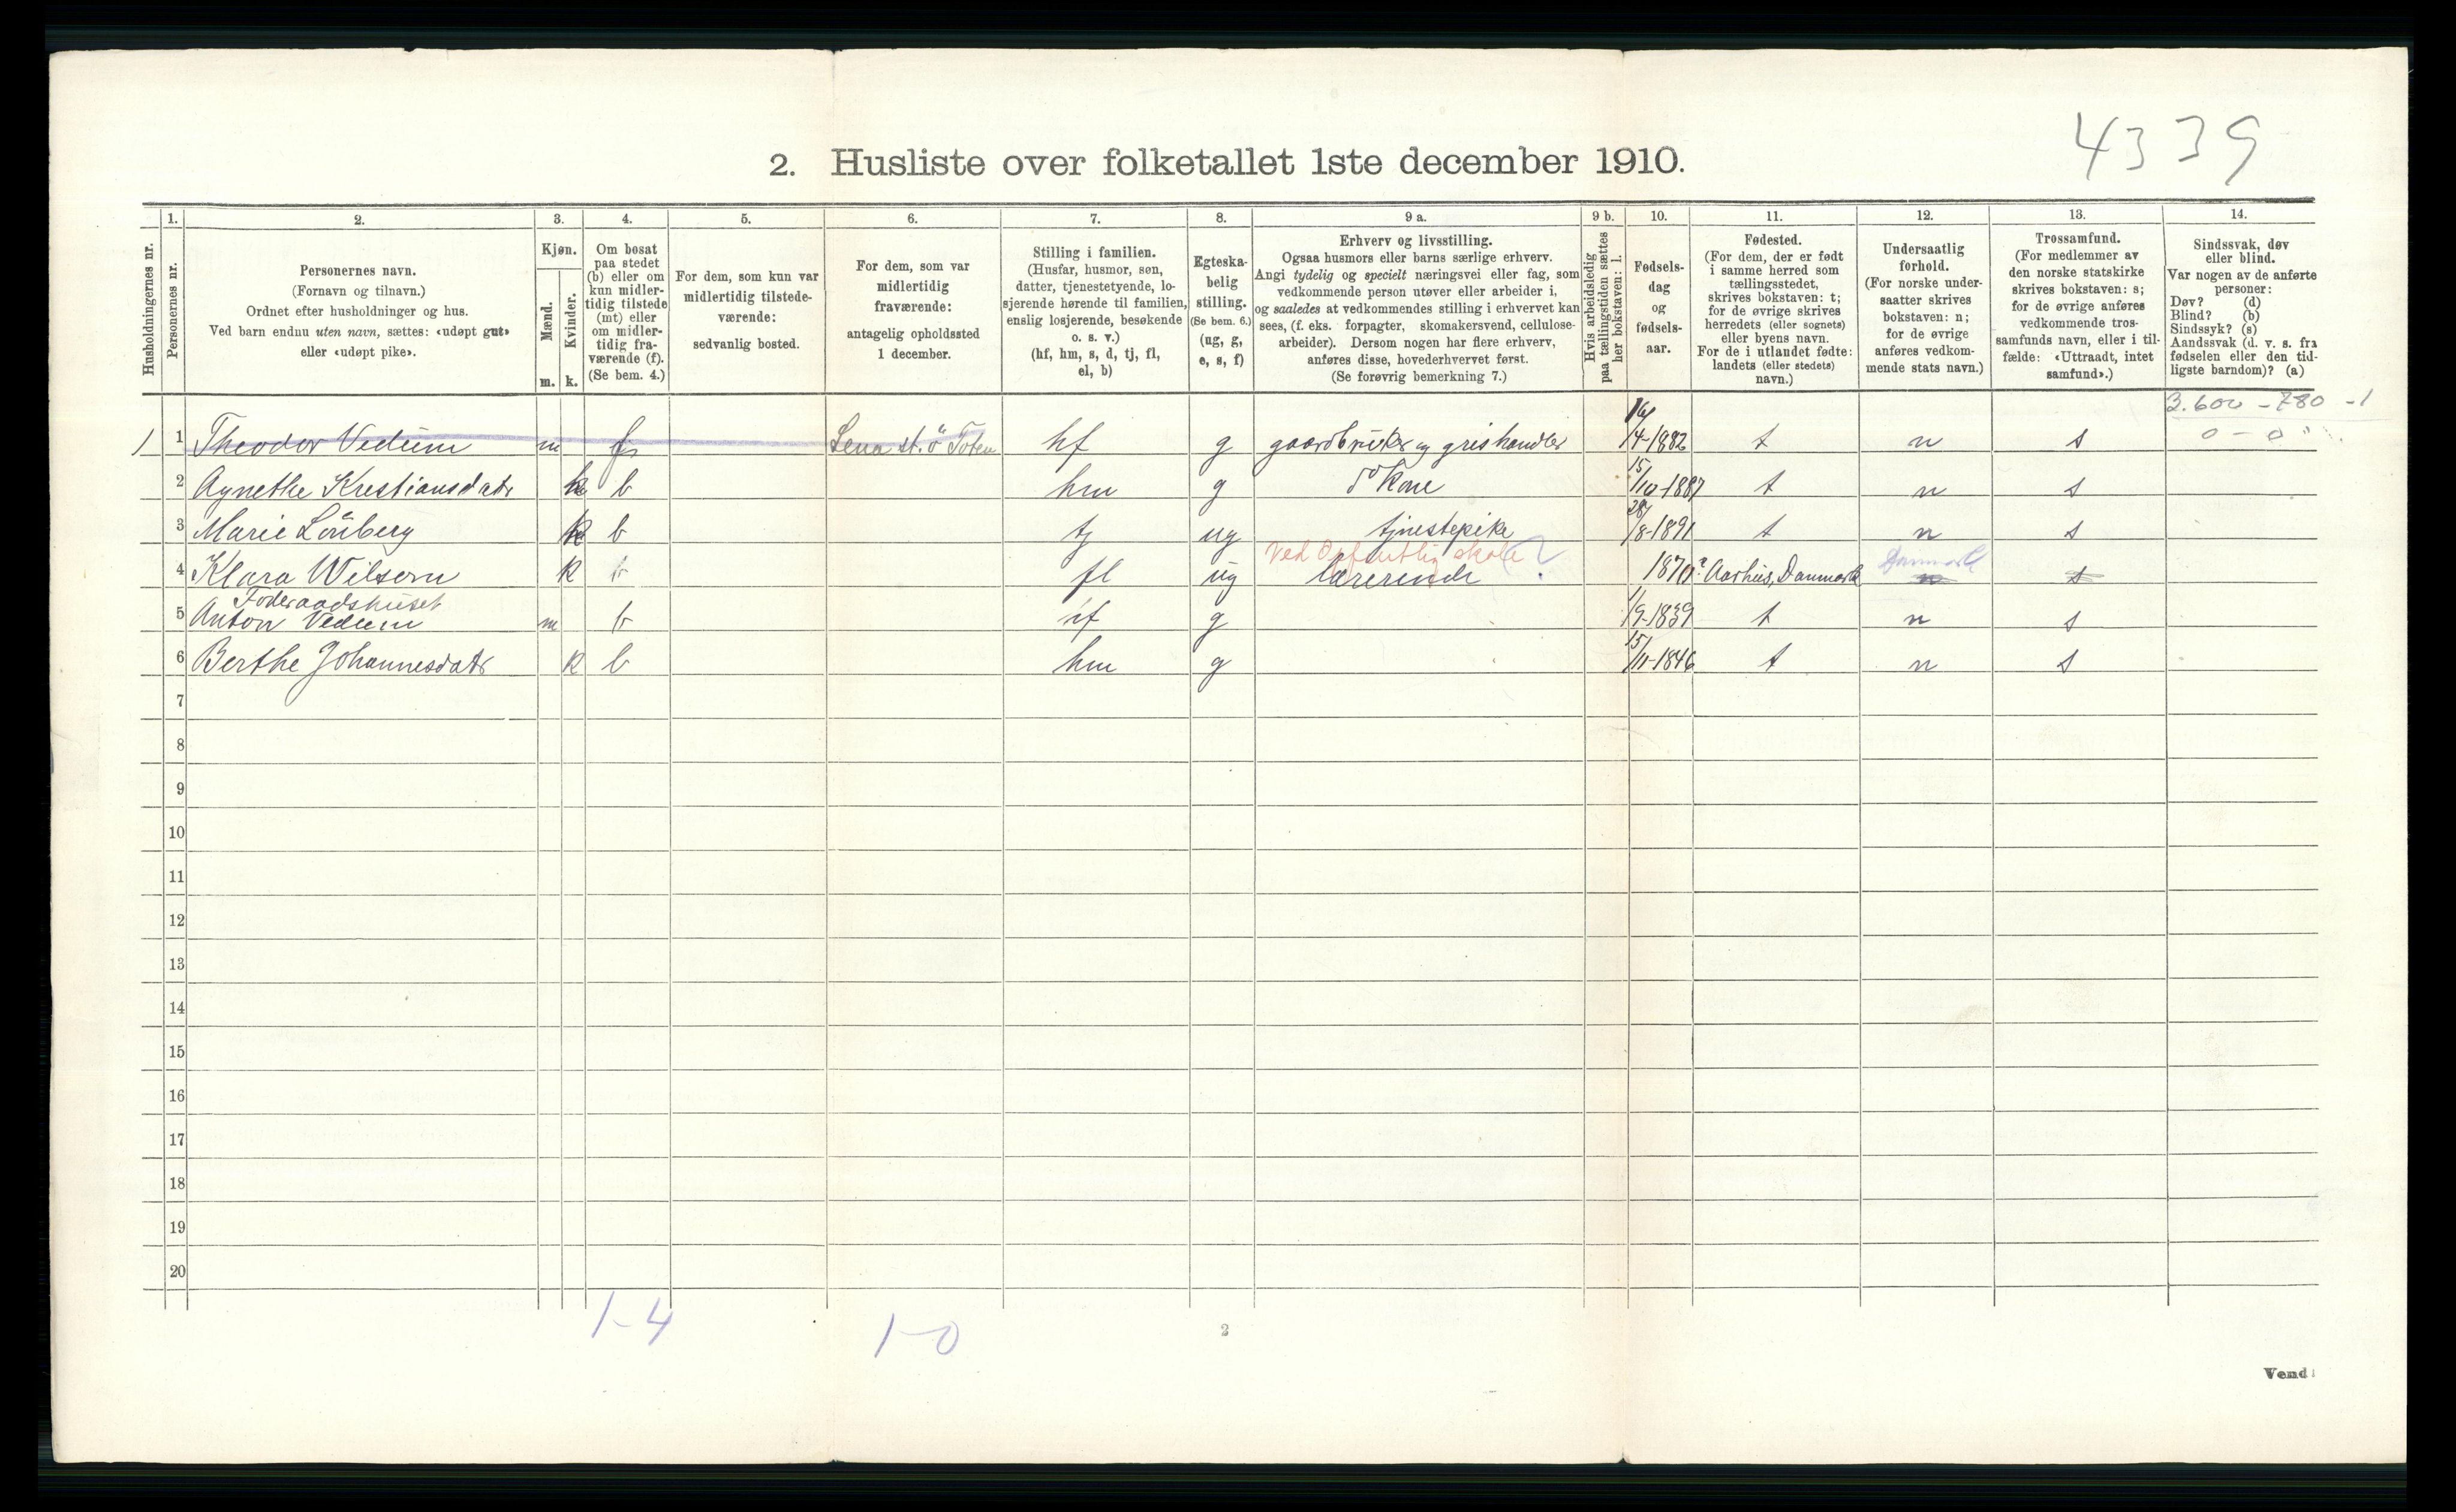 4339
2. Husliste over folketallet 1ste december 1910.
1. 2. 3. 4. 5. 6. 7. 8. 9 a. 9 b. 10. 11. 12. 13. 14.
Husholdningernes nr.
Personernes nr.
Personernes navn.
(Fornavn og tilnavn.)
Ordnet efter husholdninger og hus.
Ved barn endnu uten navn, sættes: «udøpt gut»
eller «udøpt pike».
Kjøn.
Mænd.
Kvinder.
m. k.
Om bosat
paa stedet
(b) eller om
kun midler-
tidig tilstede
(mt) eller
om midler-
tidig fra-
værende (f).
(Se bem. 4.)
For dem, som kun var
midlertidig tilstede-
værende:
sedvanlig bosted.
For dem, som var
midlertidig
fraværende:
antagelig opholdssted
1 december.
Stilling i familien.
(Husfar, husmor, søn,
datter, tjenestetyende, lo-
sjerende hørende til familien,
enslig losjerende, besøkende
o. s. v.)
(hf, hm, s, d, tj, fl,
el, b)
Egteska-
belig
stilling.
(Se bem. 6.)
(ug, g,
e, s, f)
Erhverv og livsstilling.
Ogsaa husmors eller barns særlige erhverv.
Angi tydelig og specielt næringsvei eller fag, som
vedkommende person utøver eller arbeider i,
og saaledes at vedkommendes stilling i erhvervet kan
sees, (f. eks. forpagter, skomakersvend, cellulose-
arbeider). Dersom nogen har flere erhverv,
anføres disse, hovederhvervet først.
(Se forøvrig bemerkning 7.)
Hvis arbeidsledig
paa tællingstiden sættes
her bokstaven: l.
Fødsels-
dag
og
fødsels-
aar.
Fødested.
(For dem, der er født
i samme herred som
tællingsstedet,
skrives bokstaven: t;
for de øvrige skrives
herredets (eller sognets)
eller byens navn.
For de i utlandet fødte:
landets (eller stedets)
navn.)
Undersaatlig
forhold.
(For norske under-
saatter skrives
bokstaven: n;
for de øvrige
anføres vedkom-
mende stats navn.)
Trossamfund.
(For medlemmer av
den norske statskirke
skrives bokstaven: s;
for de øvrige anføres
vedkommende tros-
samfunds navn, eller i til-
fælde: «Uttraadt, intet
samfund».)
Sindssvak, døv
eller blind.
Var nogen av de anførte
personer:
Døv? (d)
Blind? (b)
Sindssyk? (s)
Aandssvak (d. v. s. fra
fødselen eller den tid-
ligste barndom)? (a)
3.600 - 780 - 1
0 - 0
1 1 Theodor Vedum m f Lena st. ö Toten hf g gaardbruker og grishandler 16/4-1882 t n s
2 Agnethe Kristiansdatr k b hm g do Kone 15/10-1887 t n s
3 Marie Lönberg k b tj ug tjnestepike 28/8-1891 t n s
Ved Offentlig skole ?
4 Klara Wilsern k b fl ug lærerinde 1870? Aarhus, Danmark Danmark n s
Föderaadshuset
5 Anton Vedum m b hf g 1/9-1839 t n s
6 Berthe Johannesdatr k b hm g 15/11-1846 t n s
7
8
9
10
11
12
13
14
15
16
17
18
19
20
1-4 1-0
2
Vend